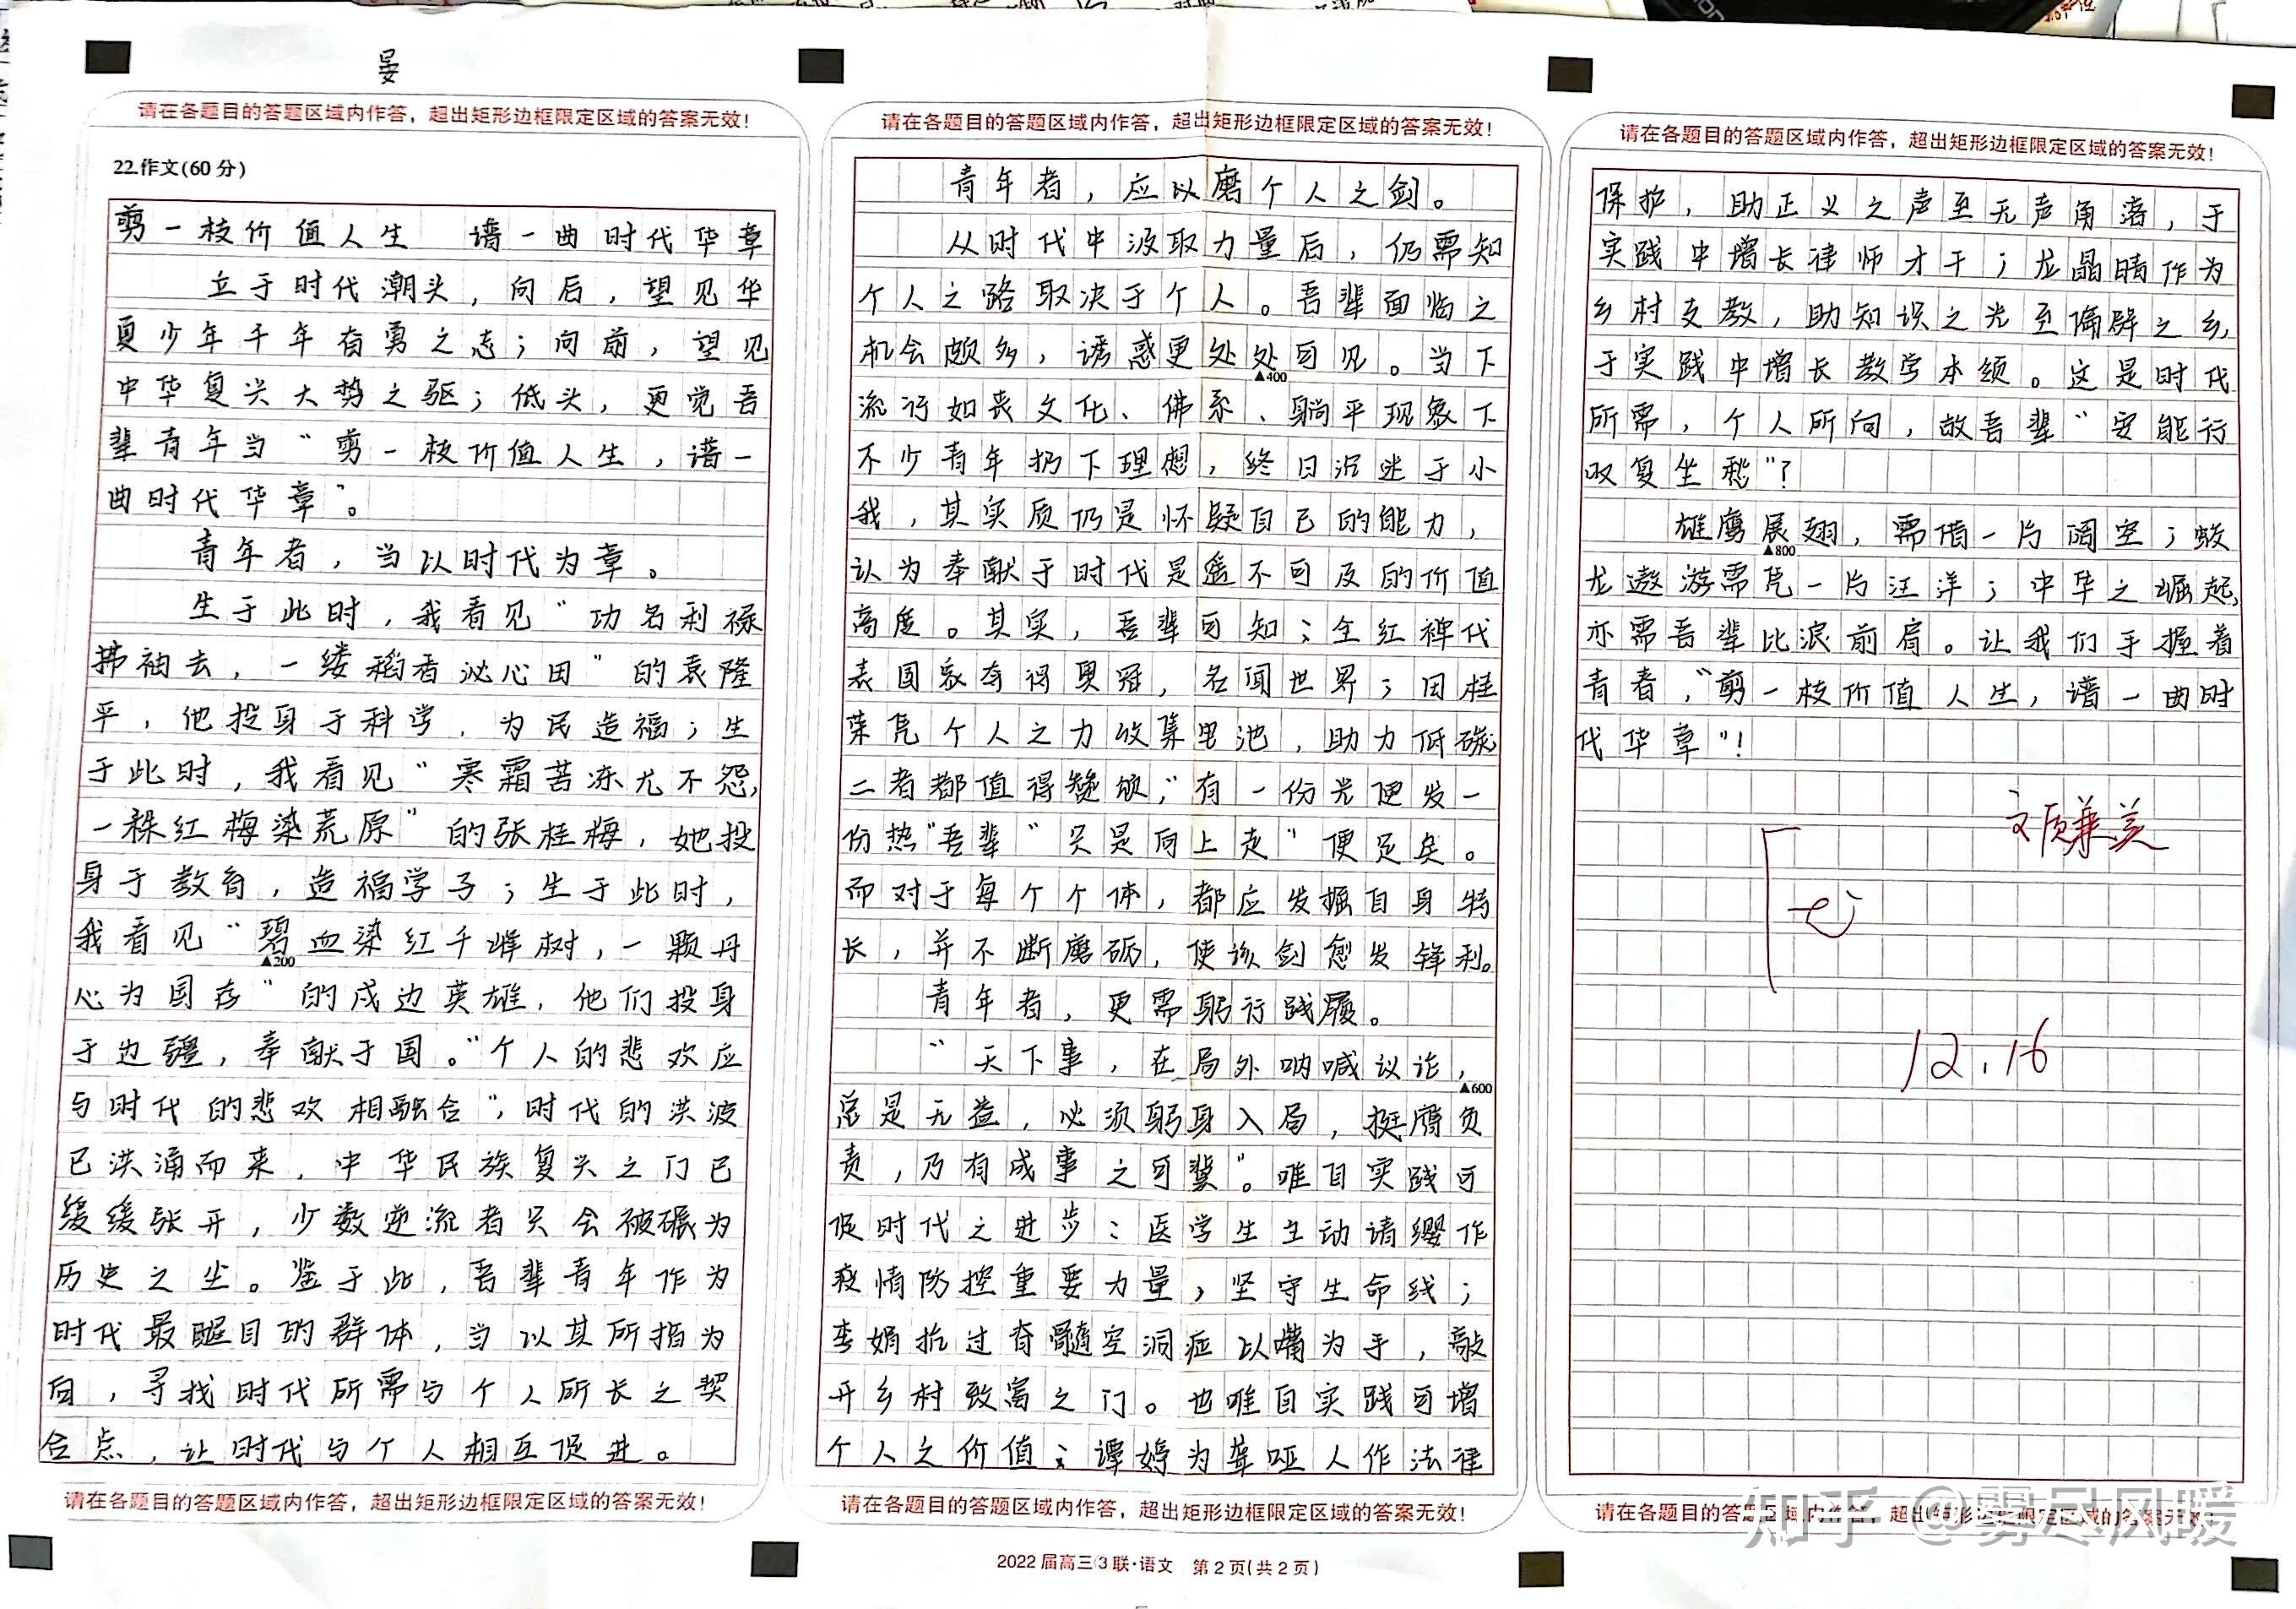 晏
请在各题目的答题区域内作答，超出矩形边框限定区域的答案无效！
22.作文(60分)
剪一枝价值人生 谱一曲时代华章
立于时代潮头，向后，望见华
夏少年千年奋勇之志；向前，望见
中华复兴大势之驱；低头，更觉吾
辈青年当“剪一枝价值人生，谱一
曲时代华章”。
青年者，当以时代为章。
生于此时，我看见“功名利禄
拂袖去，一缕稻香沁心田”的袁隆
平，他投身于科学，为民造福；生
于此时，我看见“寒霜苦冻尤不怨，
一株红梅染荒原”的张桂梅，她投
身于教育，造福学子；生于此时，
我看见“碧血染红千峰树，一颗丹
▲200
心为国存”的戍边英雄，他们投身
于边疆，奉献于国。“个人的悲欢应
与时代的悲欢相融合”，时代的洪波
已洪涌而来，中华民族复兴之门已
缓缓张开，少数逆流者只会被碾为
历史之尘。鉴于此，吾辈青年作为
时代最醒目的群体，当以其所指为
向，寻找时代所需与个人所长之契
合点，让时代与个人相互促进。
请在各题目的答题区域内作答，超出矩形边框限定区域的答案无效！
请在各题目的答题区域内作答，超出矩形边框限定区域的答案无效！
青年者，应以磨个人之剑。
从时代中汲取力量后，仍需知
个人之路取决于个人。吾辈面临之
机会颇多，诱惑更处处可见。当下
▲400
流行如丧文化、佛系、躺平现象下
不少青年扔下理想，终日沉迷于小
我，其实质仍是怀疑自己的能力，
认为奉献于时代是遥不可及的价值
高度。其实，吾辈可知：全红婵代
表国家夺得奥冠，名闻世界；田桂
荣凭个人之力收集电池，助力低碳
二者都值得赞颂，“有一份光便发一
份热”吾辈“只是向上走”便足矣。
而对于每个个体，都应发掘自身特
长，并不断磨砺，使该剑愈发锋利。
青年者，更需躬行践履。
“天下事，在局外呐喊议论，
▲600
总是无益，必须躬身入局，挺膺负
责，乃有成事之可冀”。唯自实践可
促时代之进步：医学生主动请缨作
疫情防控重要力量，坚守生命线；
李娟抗过脊髓空洞症以嘴为手，敲
开乡村致富之门。也唯自实践可增
个人之价值：谭婷为聋哑人作法律
请在各题目的答题区域内作答，超出矩形边框限定区域的答案无效！
2022届高三③联·语文 第2页(共2页)
请在各题目的答题区域内作答，超出矩形边框限定区域的答案无效！
保护，助正义之声至无声角落，于
实践中增长律师才干；龙晶晴作为
乡村支教，助知识之光至偏僻之乡，
于实践中增长教学本领。这是时代
所需，个人所向，故吾辈“安能行
叹复坐愁”？
雄鹰展翅，需借一片阔空；蛟
▲800
龙遨游需凭一片汪洋；中华之崛起，
亦需吾辈比浪前肩。让我们手握着
青春，“剪一枝价值人生，谱一曲时
代华章”！
文质兼美
12.16
请在各题目的答题区域内作答，超出矩形边框限定区域的答案无效！
知乎 @雾尽风暖